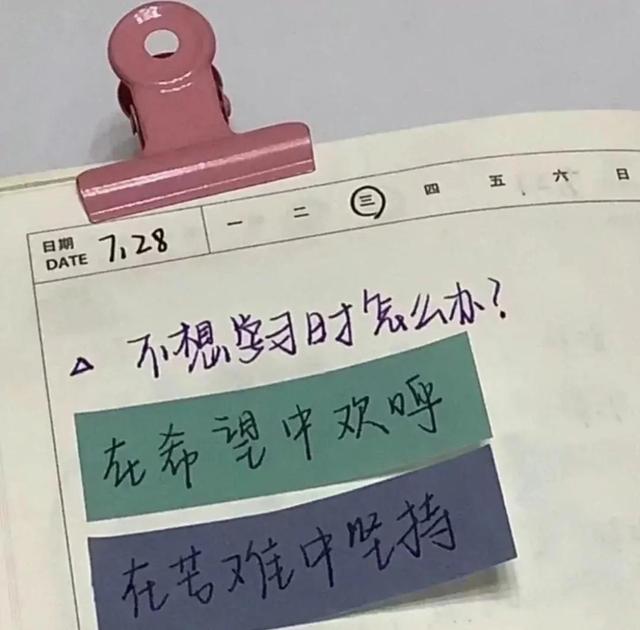 日期 7.28 一 二 三 四 五 六 日
DATE
△ 不想学习时怎么办?
在希望中欢呼
在苦难中坚持